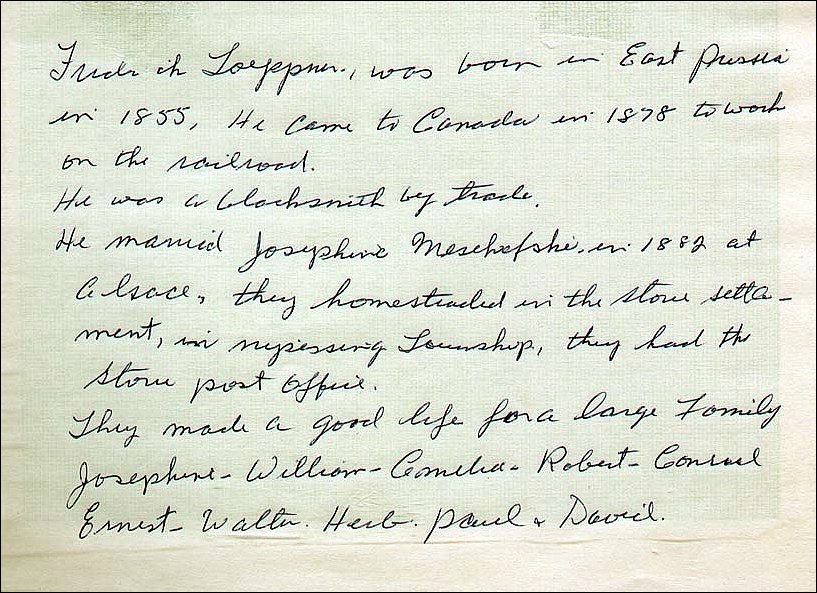 was born in East Prussia
in 1855, He came to Canada in 1878 to work
on the railroad.
He was a blacksmith by trade.
He married Josephine in 1882 at
Alsace, they homesteaded in the Stone settle-
ment, in nipissing Township, they had the
Stone post office.
They made a good life for a large Family
Josephine - William - - Robert - Conrad
Ernest - Walter. Herb. Paul & David.